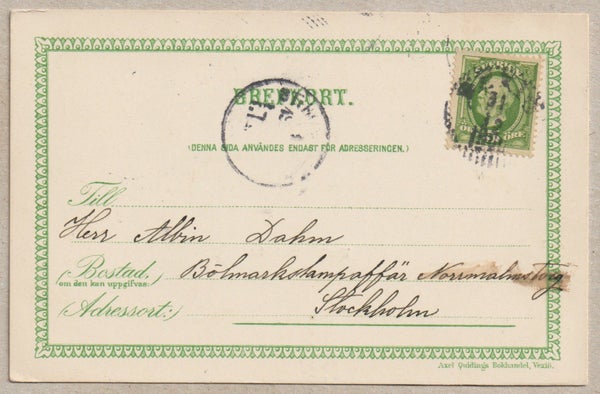 BREFKORT.
(DENNA SIDA ANVÄNDES ENDAST FÖR ADRESSERINGEN.)
Till
Herr Albin Dahm
(Bostad,
om den kan uppgifvas:)
Bölmarkslampaffär Norrmalmstorg
(Adressort:)
Stockholm
Axel Quidings Bokhandel, Vexiö.